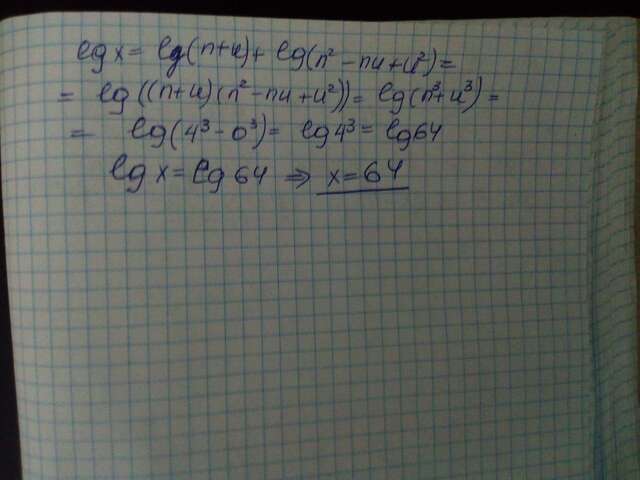 lg x = lg(n+u) + lg(n² - nu + u²) =
= lg((n+u)(n² - nu + u²)) = lg(n³ + u³) =
= lg(4³ - 0³) = lg 4³ = lg 64
lg x = lg 64 ⇒ x = 64